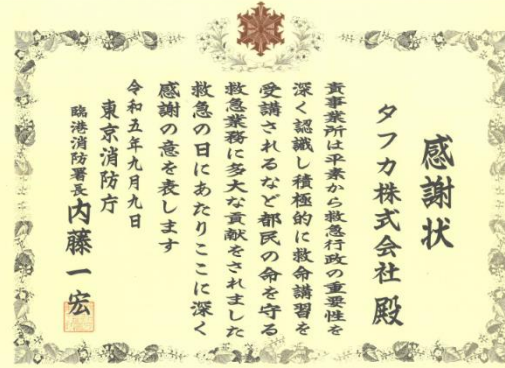 感謝状
タフカ株式会社 殿
貴事業所は平素から救急行政の重要性を
深く認識し積極的に救命講習を
受講されるなど都民の命を守る
救急業務に多大な貢献をされました
救急の日にあたりここに深く
感謝の意を表します
令和五年九月九日
東京消防庁
臨港消防署長 内藤一宏